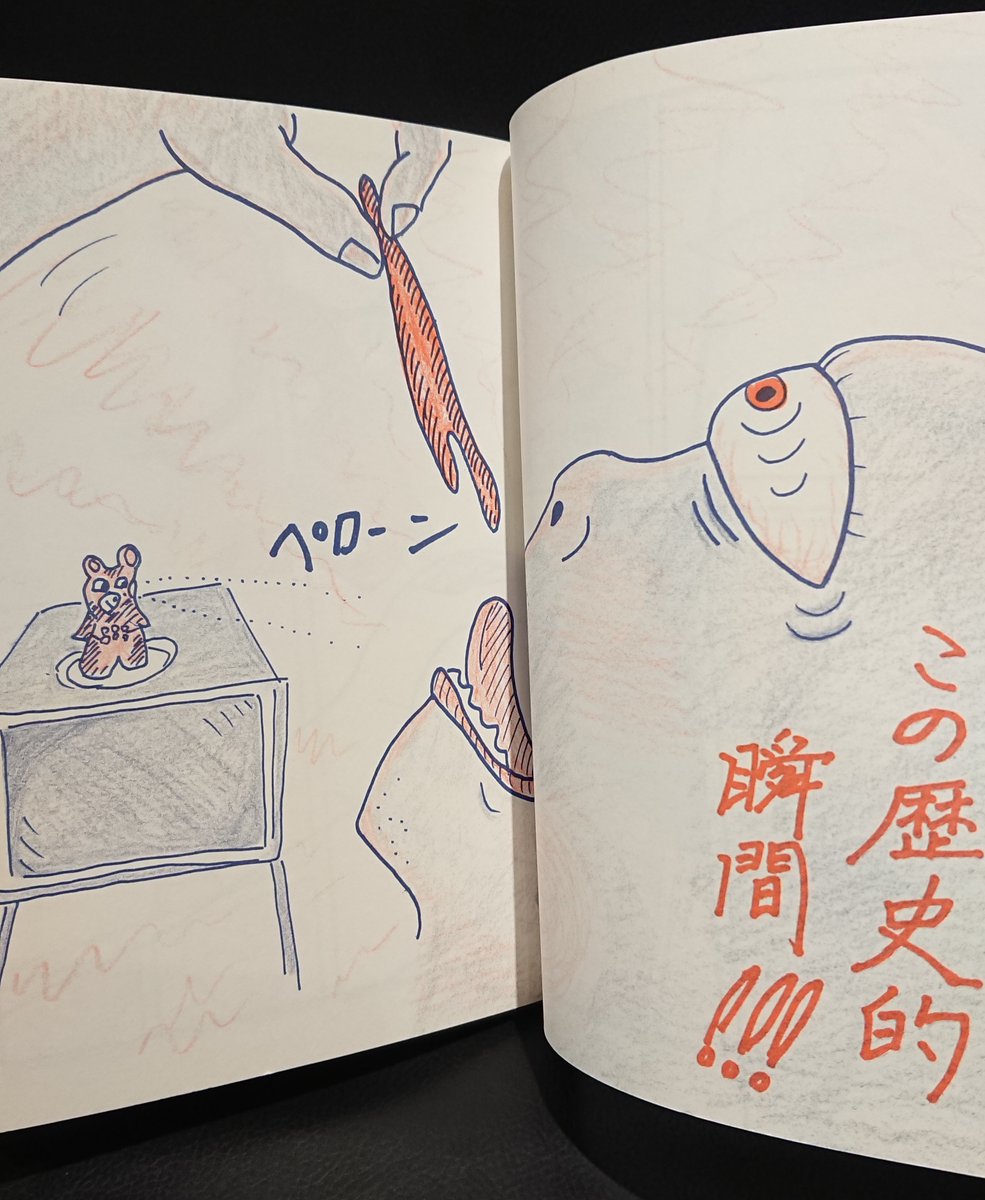 ペローン
この歴史的
瞬間!!!